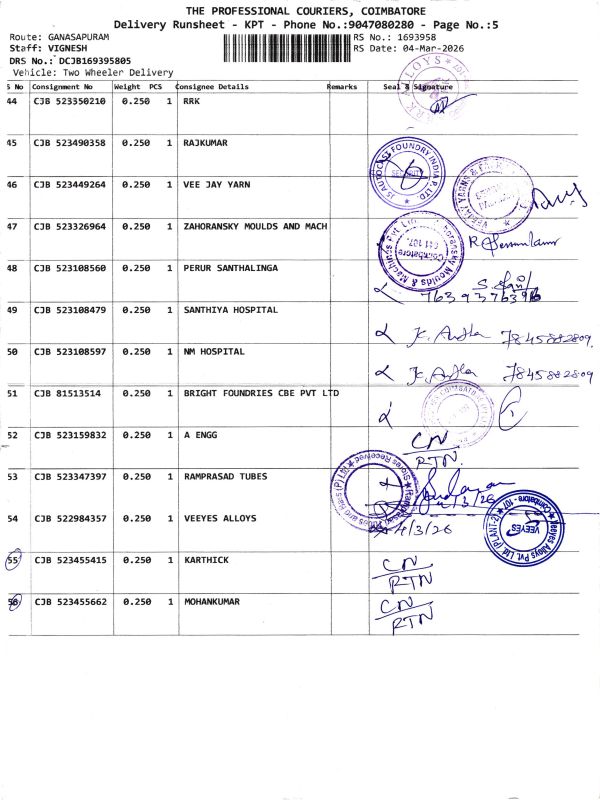 THE PROFESSIONAL COURIERS, COIMBATORE
Delivery Runsheet - KPT - Phone No.:9047080280 - Page No.:5
Route: GANASAPURAM
RS No.: 1693958
Staff: VIGNESH
RS Date: 04-Mar-2026
DRS No.: DCJB169395805
Vehicle: Two Wheeler Delivery
S No Consignment No Weight PCS Consignee Details Remarks Seal & Signature
44 CJB 523350210 0.250 1 RRK
45 CJB 523490358 0.250 1 RAJKUMAR
46 CJB 523449264 0.250 1 VEE JAY YARN
47 CJB 523326964 0.250 1 ZAHORANSKY MOULDS AND MACH
48 CJB 523108560 0.250 1 PERUR SANTHALINGA
49 CJB 523108479 0.250 1 SANTHIYA HOSPITAL 7845882809
50 CJB 523108597 0.250 1 NM HOSPITAL 7845882809
51 CJB 81513514 0.250 1 BRIGHT FOUNDRIES CBE PVT LTD
52 CJB 523159832 0.250 1 A ENGG CN RTN
53 CJB 523347397 0.250 1 RAMPRASAD TUBES
54 CJB 522984357 0.250 1 VEEYES ALLOYS 4/3/26
VEEYES
Veeyes Alloys Pvt. Ltd. (PLANT-2) Coimbatore - 107
55 CJB 523455415 0.250 1 KARTHICK CN RTN
56 CJB 523455662 0.250 1 MOHANKUMAR CN RTN